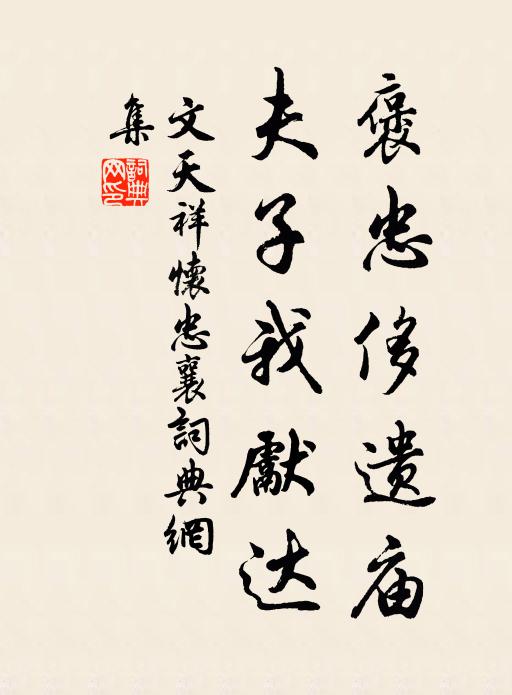 褒忠侈遗庙
夫子我獻达
文天祥懷忠襄詞典網
集
詞典
网印